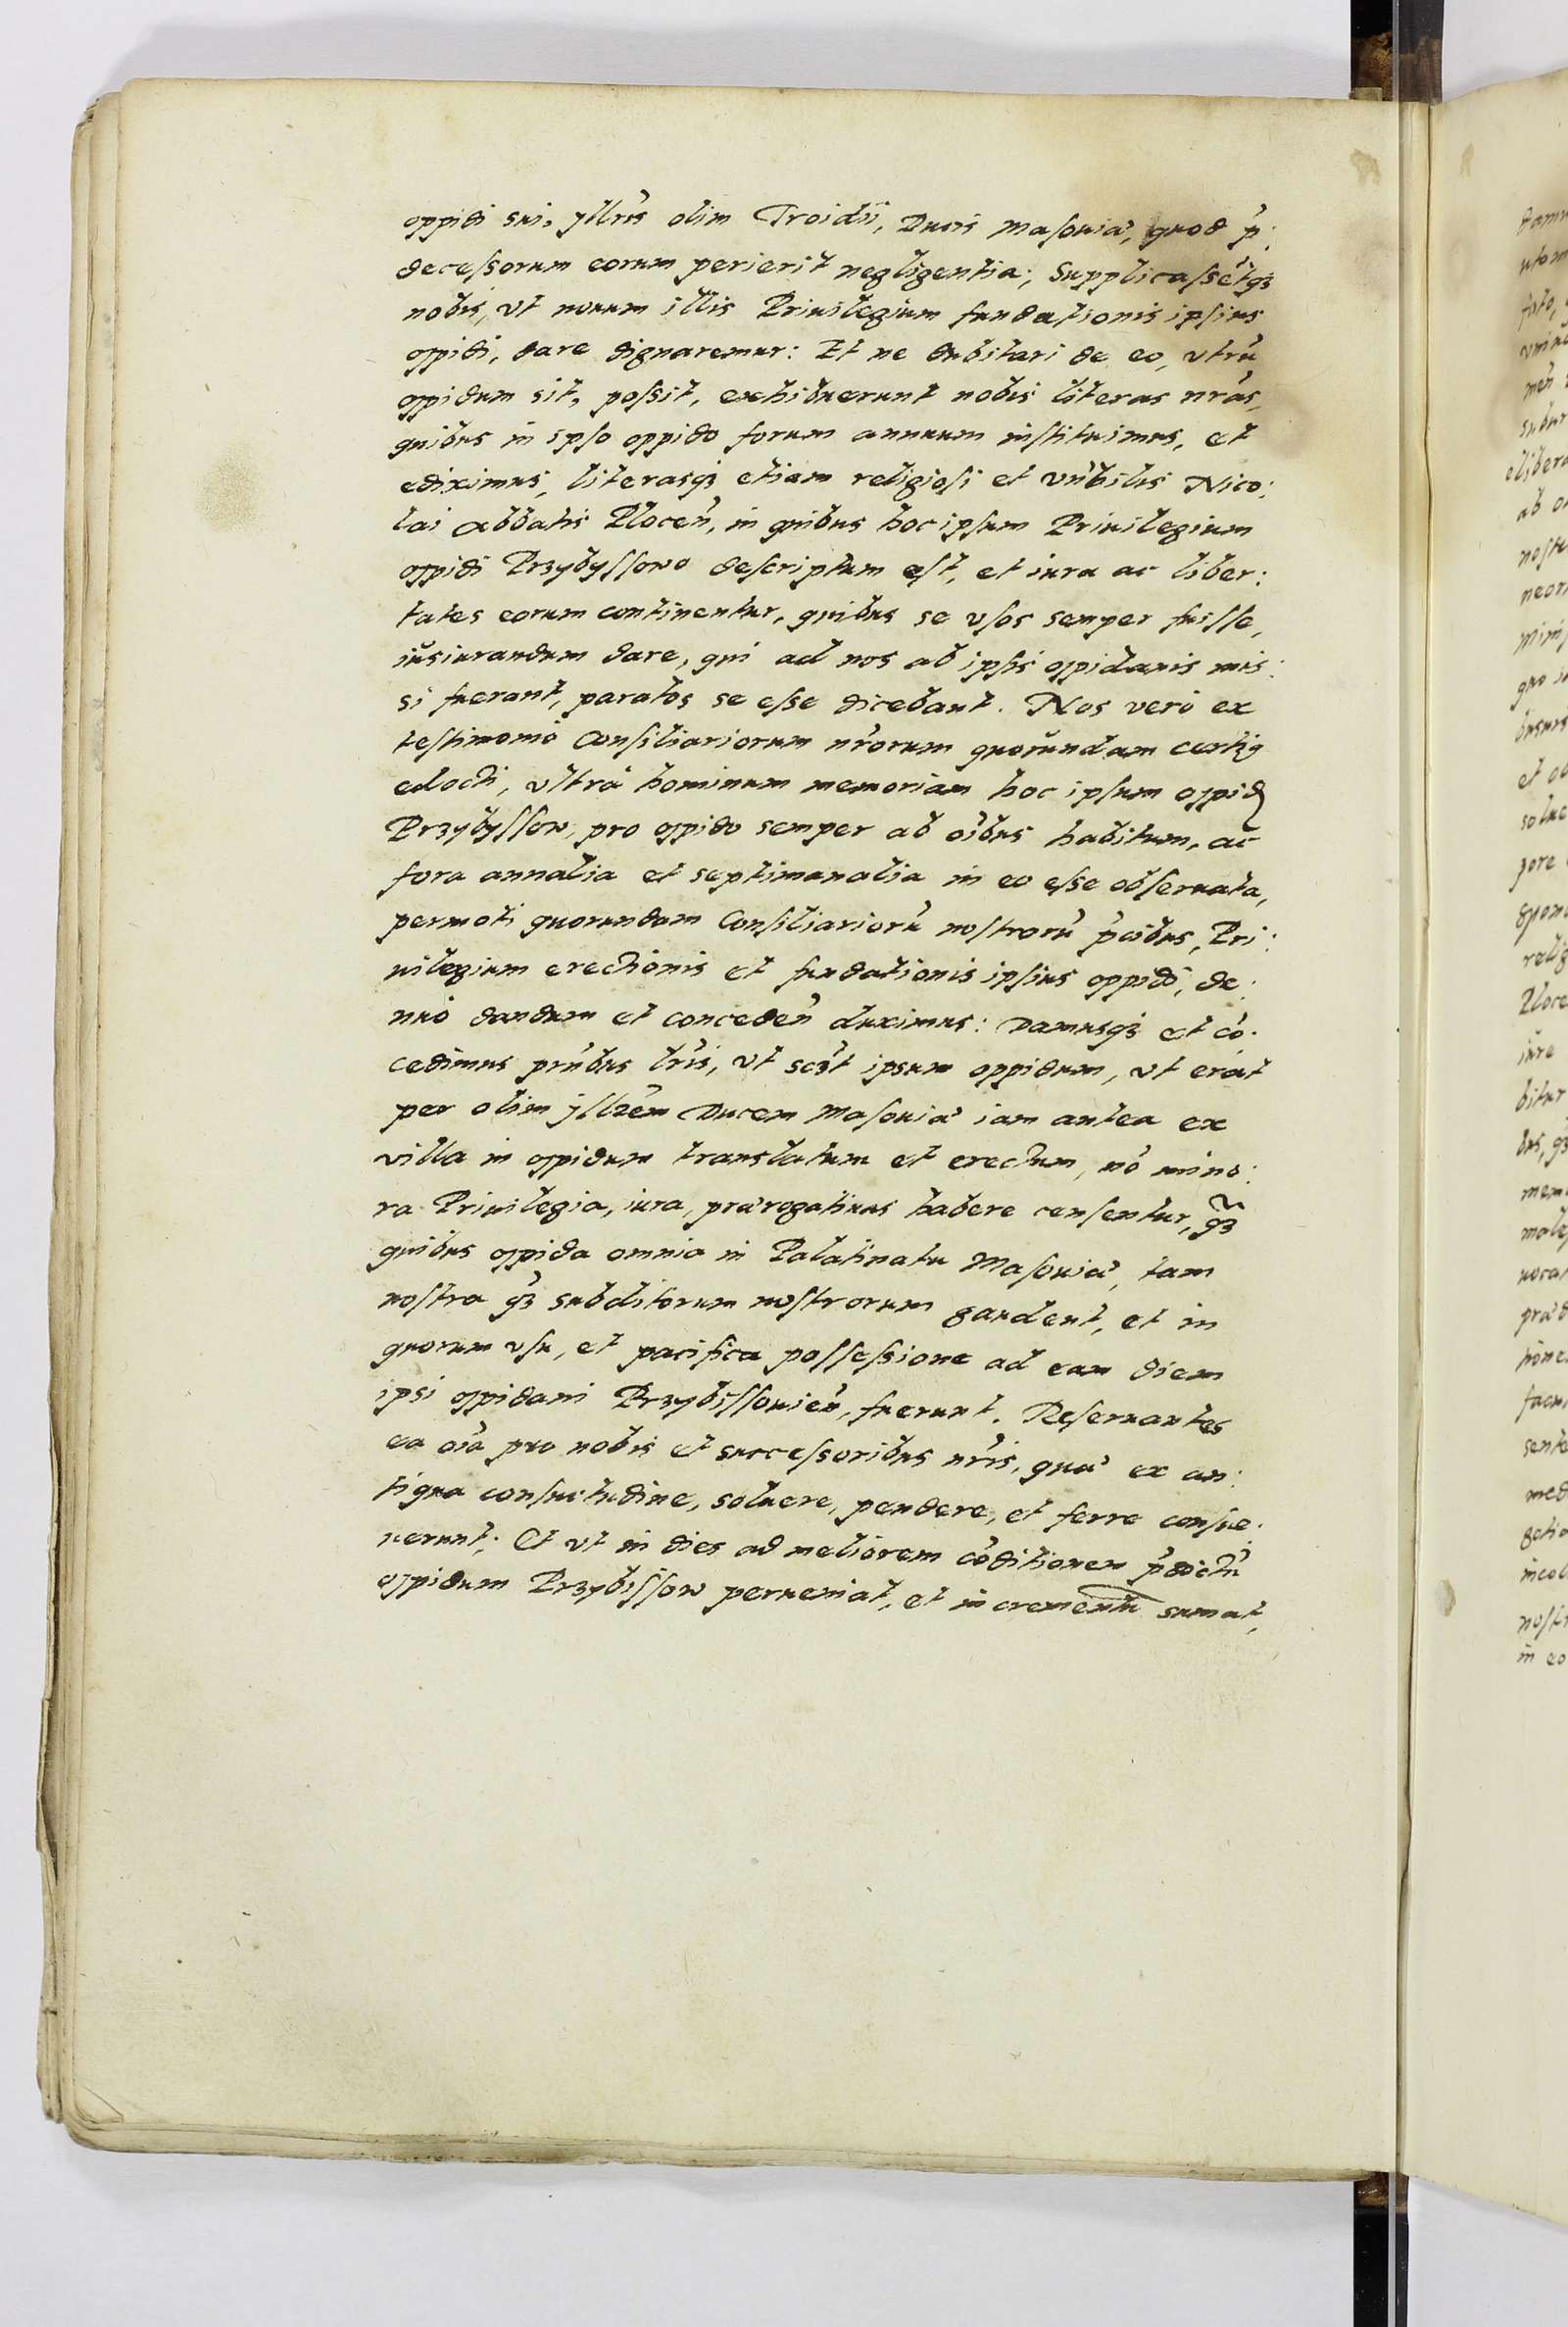 oppidi sui, yllrĩs olim Troidĩi, Ducis Masouiæ, quod p̃:
decessorum eorum perierit negligentia; supplicassẽtqз
nobis, vt nouum illis Priuilegium fundationis ipsius
oppidi, dare dignaremur: Et ne dubitari de eo, vtrũ
oppidum sit, possit, exhibuerunt nobis literas nrãs,
quibus in ipso oppido forum annuum instituimus, et
ediximus, literasqз etiam religiosi et vñbilis Nico:
lai Abbatis Plocen̄, in quibus hoc ipsum Priuilegium
oppidi Przybyssowo descriptum est, et iura ac liber:
tates eorum continentur, quibus se vsos semper fuisse,
iusiurandum dare, qui ad nos ab ipsis oppidanis mis:
si fuerant, paratos se esse dicebant. Nos verò ex
testimonio Consiliariorum nrõrum quorundam certiq
edocti, vltrà hominum memoriam hoc ipsum oppid
Przybyssow, pro oppido semper ab oĩbus habitum, ac
fora annalia et septimanalia in eo esse obseruata,
permoti quorundam Consiliariorũ nostrorũ p̃cibus, Pri:
uilegium erectionis et fundationis ipsius oppidi, de:
nuò dandum et conceden̄ duximus: Damusqз et cõ:
cedimus prñbus lrĩs, vt sczt ipsum oppidum, vt erat
per olim yllrẽm Ducem Masouiæ iam antea ex
villa in oppidum translatum et erectum, nõ mino:
ra Priuilegia, iura, prærogatiuas habere censentur, q̃з
quibus oppida omnia in Palatinatu Masouiæ, tam
nostra q̃з subditorum nostrorum gaudent, et in
quorum vsu, et pacifica possessione ad eam diem
ipsi oppidani Przybissouien̄, fuerunt. Reseruantes
ea oĩa pro nobis et successoribus nrĩs, quæ ex an:
tiqua consuetudine, soluere, pendere, et ferre consue:
uerunt; Et vt in dies ad meliorem cõditionem p̃dictũ
oppidum Przybissow perueniat, et incrementũ sumat,